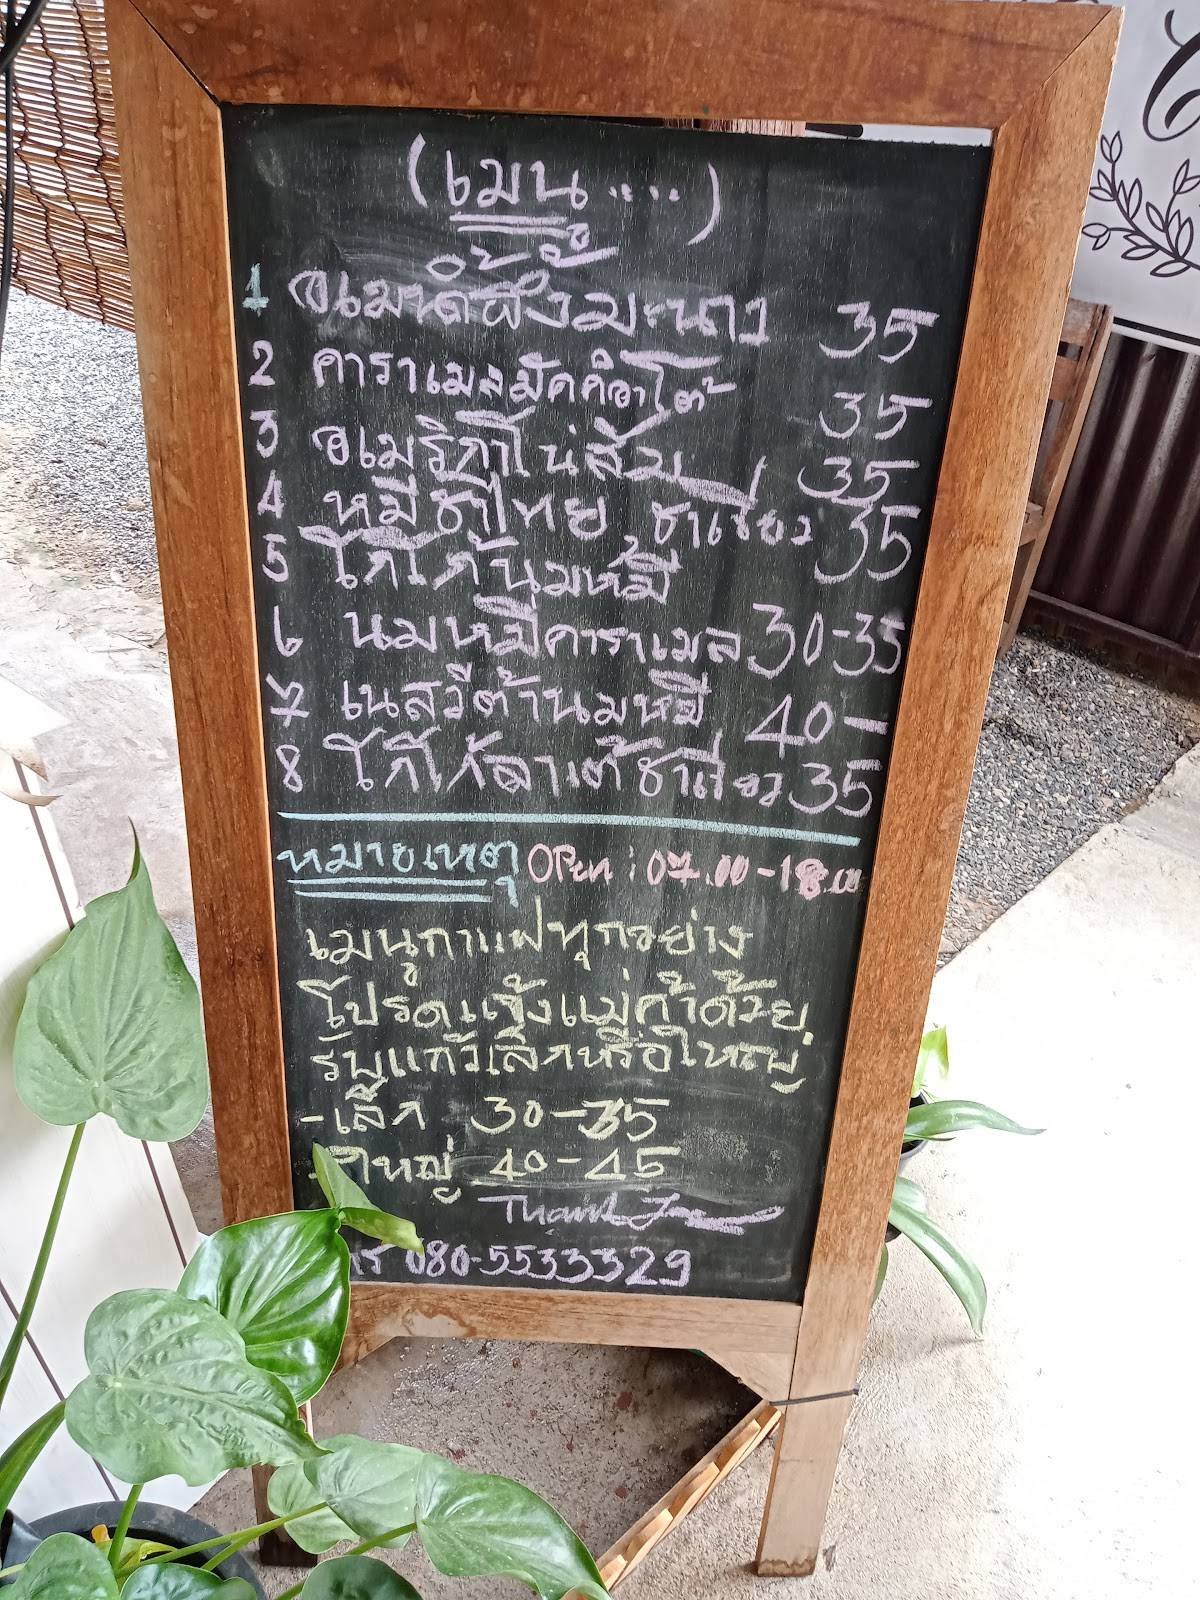 (เมนู ....)
1 อเมน้ำผึ้งมะนาว 35
2 คาราเมลมัคคิอาโต้ 35
3 อเมริกาโน่ส้ม 35
4 หมีชาไทย ชาเขียว 35
5 โกโก้นมหมี
6 นมหมีคาราเมล 30-35
7 เนสวีต้านมหมี 40-
8 โกโก้ลาเต้ชาเขียว 35
หมายเหตุ Open : 07.00-18.00
เมนูกาแฟทุกอย่าง
โปรดแจ้งแม่ค้าด้วย
รับแก้วเล็กหรือใหญ่
-เล็ก 30-35
-ใหญ่ 40-45
Thank
โทร 080-5533329